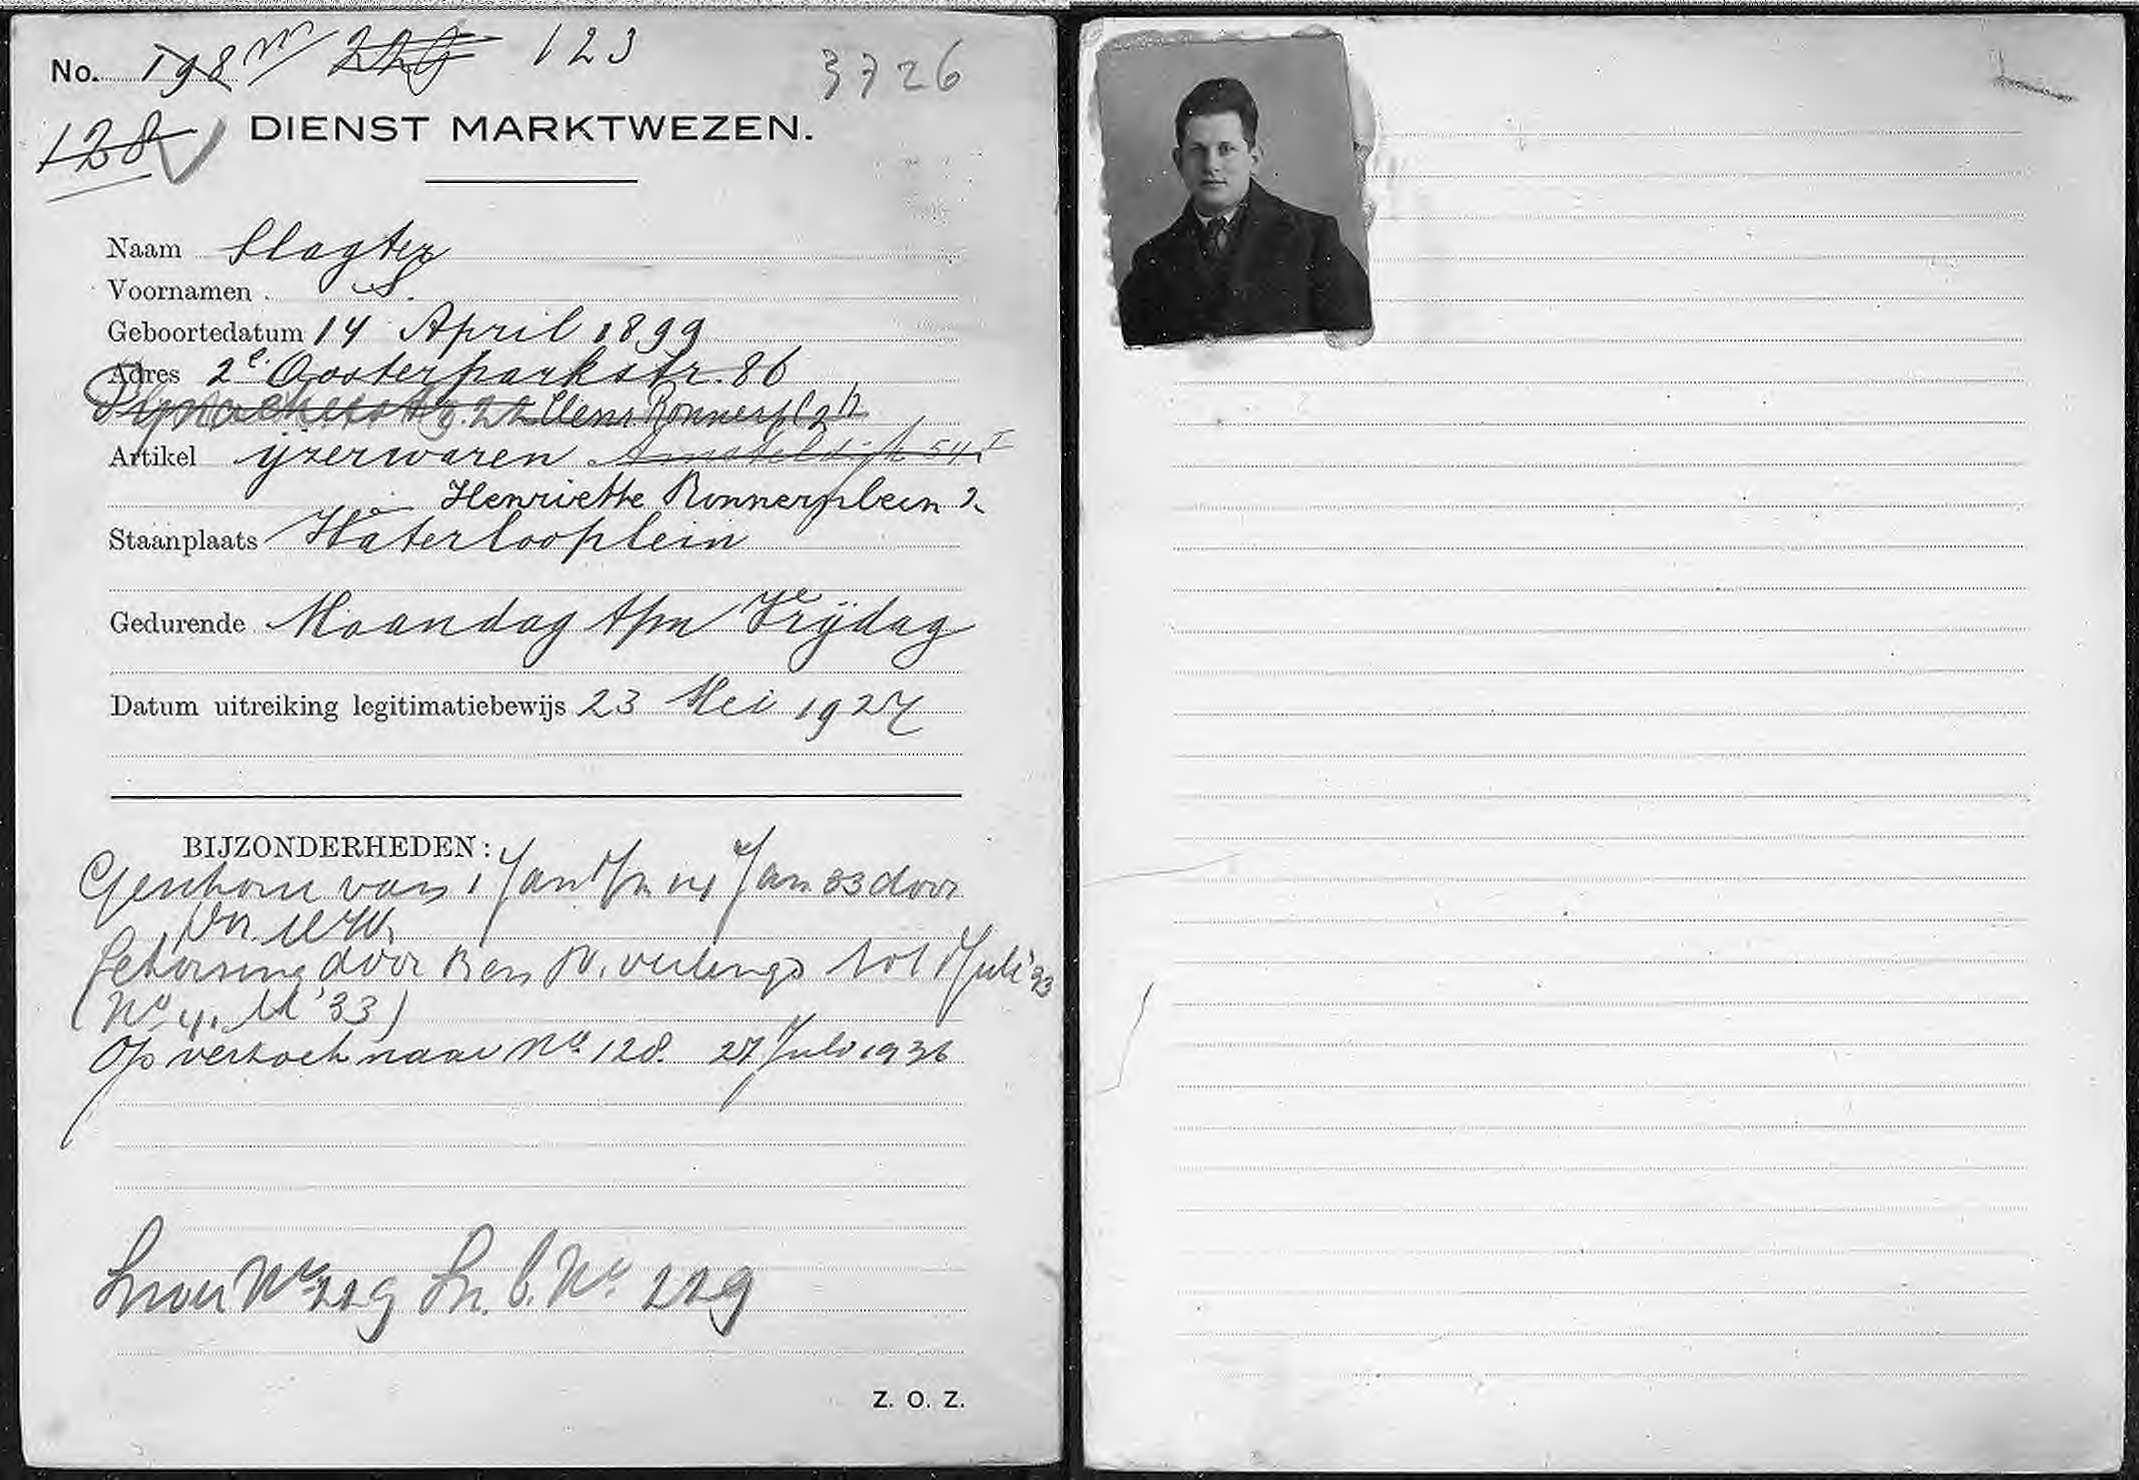 No. 198 229 123 3726
128
DIENST MARKTWEZEN.
Naam Slagter
Voornamen S.
Geboortedatum 14 April 1899
Adres 2e Oosterparkstr. 86
Pynackerstr. 22 Henr Ronnerpl 2
Artikel ijzerwaren Amsteldijk 54 I
Henriette Ronnerplein 2
Staanplaats Waterlooplein
Gedurende Maandag t/m Vrijdag
Datum uitreiking legitimatiebewijs 23 Mei 1927
BIJZONDERHEDEN:
Geschorst van 1 Jan t/m 14 Jan 33 door
Schorsing door B en W. verlengd tot 1 Juli '33
(No 4. M '33)
Op verzoek naar No. 128. 27 Juli 1936
No 229 No. 229
Z. O. Z.